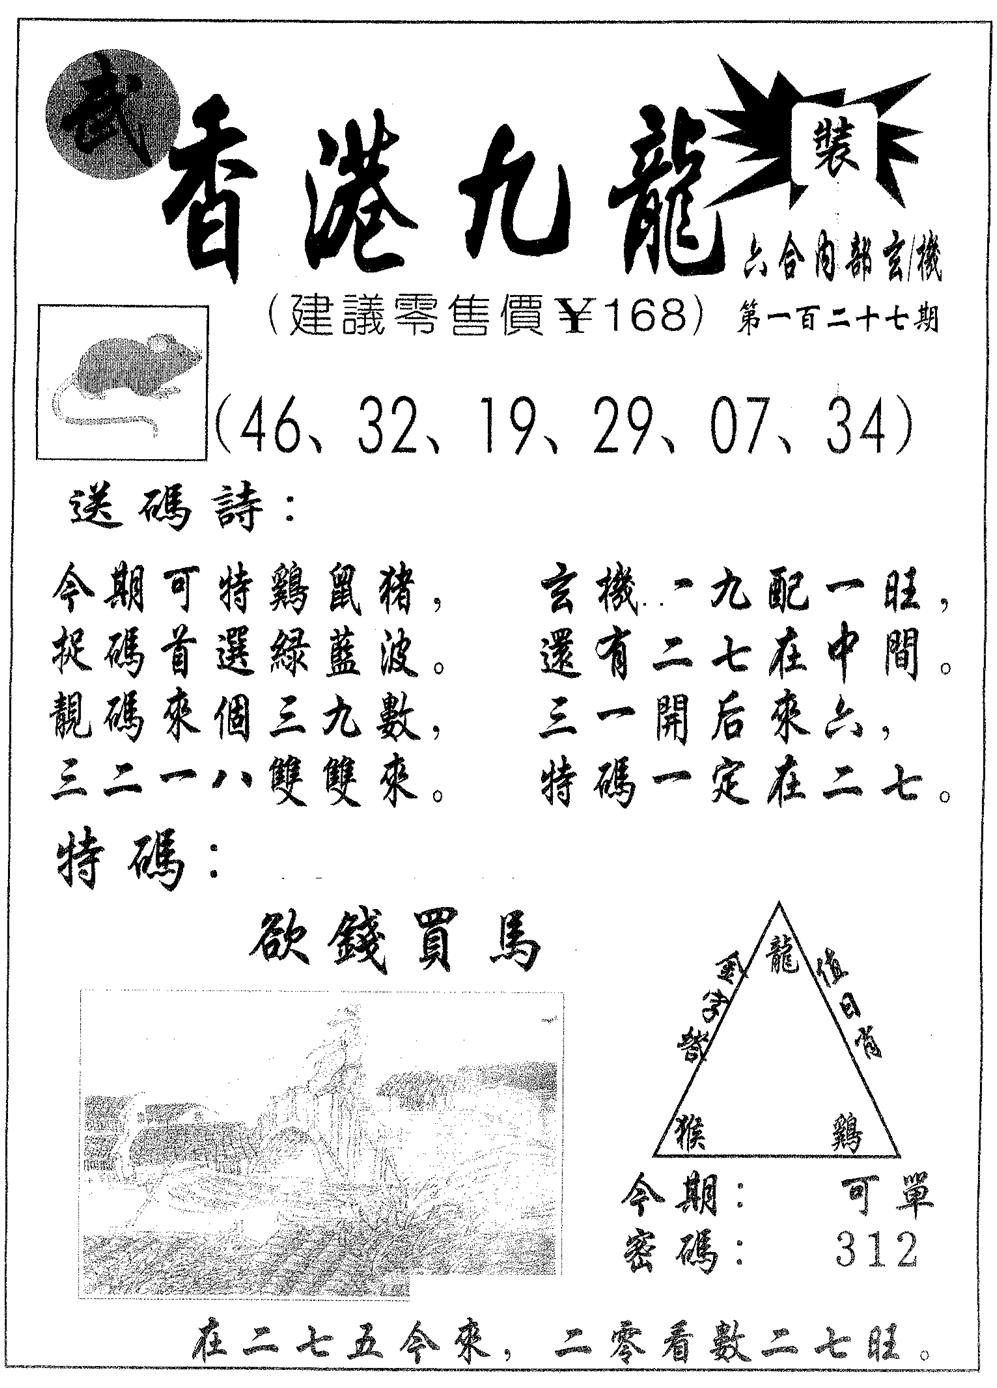 武
香港九龍
裝
六合内部玄機
（建議零售價￥168）
第一百二十七期
（46、32、19、29、07、34）
送碼詩：
今期可特鷄鼠猪，
捉碼首選綠藍波。
靚碼來個三九數，
三二一八雙雙來。
玄機一九配一旺，
還有二七在中間。
三一開后來六，
特碼一定在二七。
特碼：
欲錢買馬
龍
值日肖
猴
鷄
今期：可單
密碼：312
在二七五今來，二零看數二七旺。